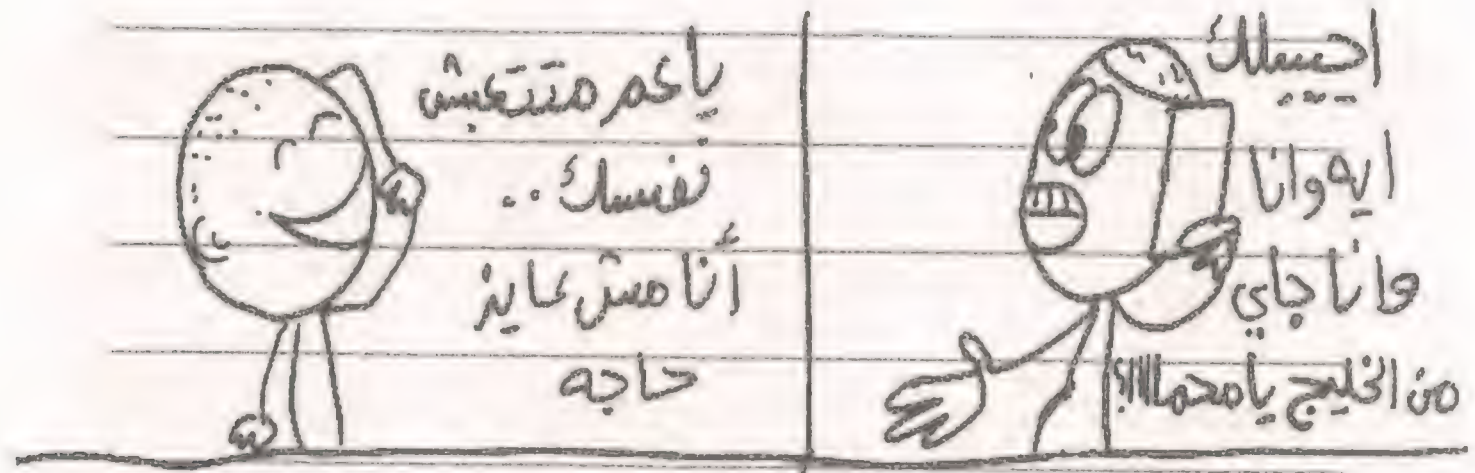 اجيبلك
ايه وانا
وانا جاي
من الخليج يا محمااااا؟!
يا عم متتعبش
نفسك..
أنا مش عايز
حاجه